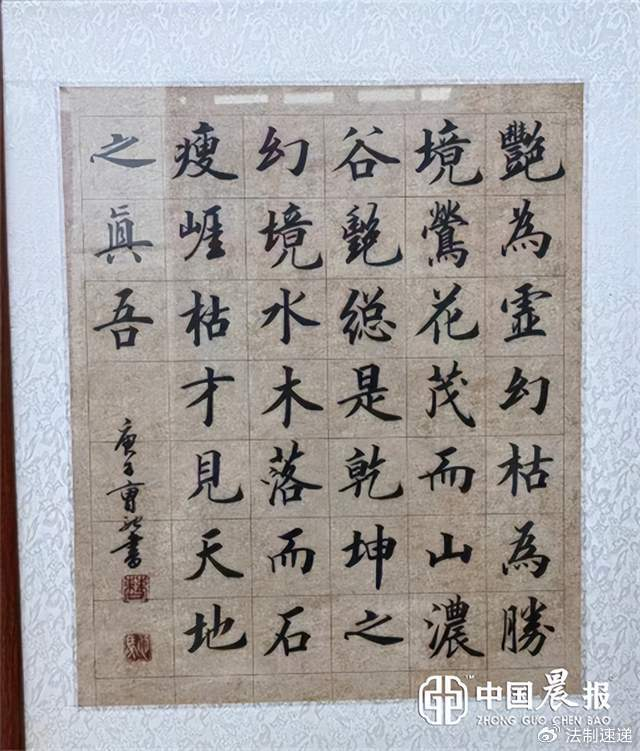 艷為虛幻枯為勝
境鶯花茂而山濃
谷艶緫是乾坤之
幻境水木落而石
瘦崕枯才見天地
之眞吾
庚子曹書
中国晨报
ZHONG GUO CHEN BAO
法制速递